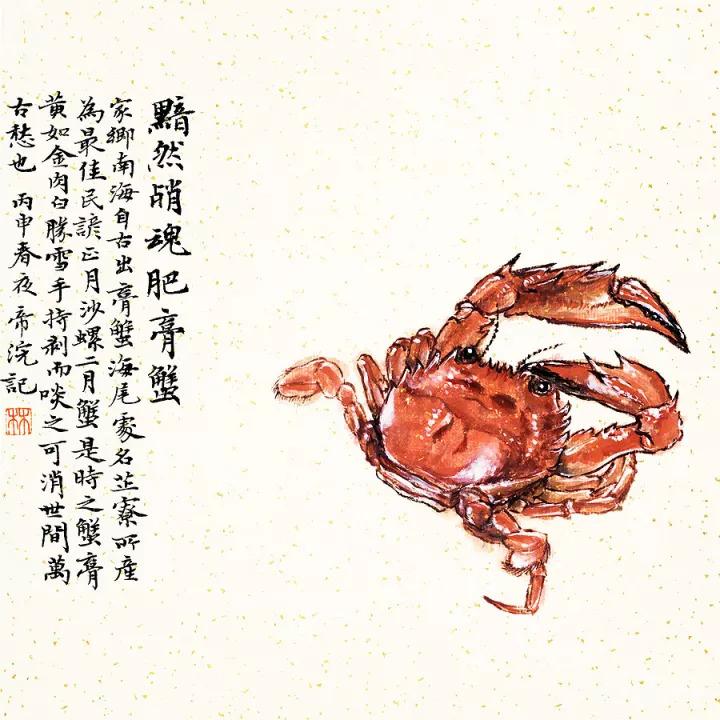 黯然銷魂肥膏蟹
家鄉南海自古出膏蟹海尾處名芷寮所產
為最佳民諺正月沙螺二月蟹是時之蟹膏
黃如金肉白勝雪手持剥而啖之可消世間萬
古愁也 丙申春夜 帝浣記
林